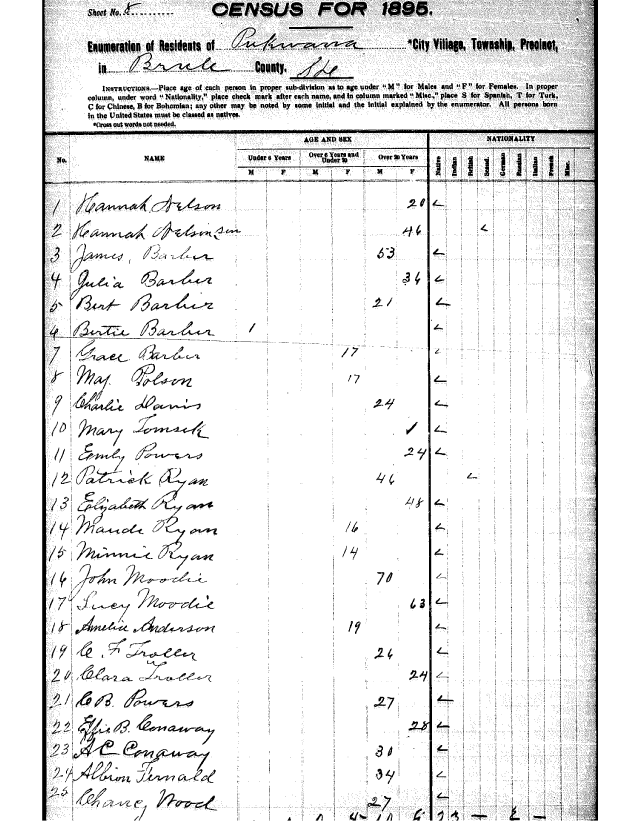 Sheet No. 8
CENSUS FOR 1895.
Enumeration of Residents of Pukwana *City Village, Township, Precinct,
in Brule County,
INSTRUCTIONS.—Place age of each person in proper sub-division as to age under "M" for Males and "F" for Females. In proper
column, under word "Nationality," place check mark after each name, and in column marked "Misc." place S for Spanish, T for Turk,
C for Chinese, B for Bohemian; any other may be noted by some initial and the initial explained by the enumerator. All persons born
in the United States must be classed as natives.
*Cross out words not needed.
AGE AND SEX NATIONALITY
No. NAME Under 6 Years Over 6 Years and Under 20 Over 20 Years Native Indian British Scand. German Russian Italian French Misc.
M F M F M F
1 Hannah Nelson 20 ✓
2 Hannah Nelson sen 46 ✓
3 James, Barber 53 ✓
4 Julia Barber 36 ✓
5 Bert Barber 21 ✓
6 Bertie Barber 1 ✓
7 Grace Barber 17 ✓
8 May Polson 17 ✓
9 Charlie Davis 24 ✓
10 Mary Tomsek ✓
11 Emly Powers 24 ✓
12 Patrick Ryan 46 ✓
13 Elizabeth Ryan 48 ✓
14 Maude Ryan 16 ✓
15 Minnie Ryan 14 ✓
16 John Moodie 70 ✓
17 Lucy Moodie 63 ✓
18 Amelia Anderson 19 ✓
19 C. F Troller 26 ✓
20 Clara Troller 24 ✓
21 C B. Powers 27 ✓
22 Effie B. Conaway 28 ✓
23 A C Conaway 30 ✓
24 Albion Fernald 34 ✓
25 Chancy Wood 27 ✓